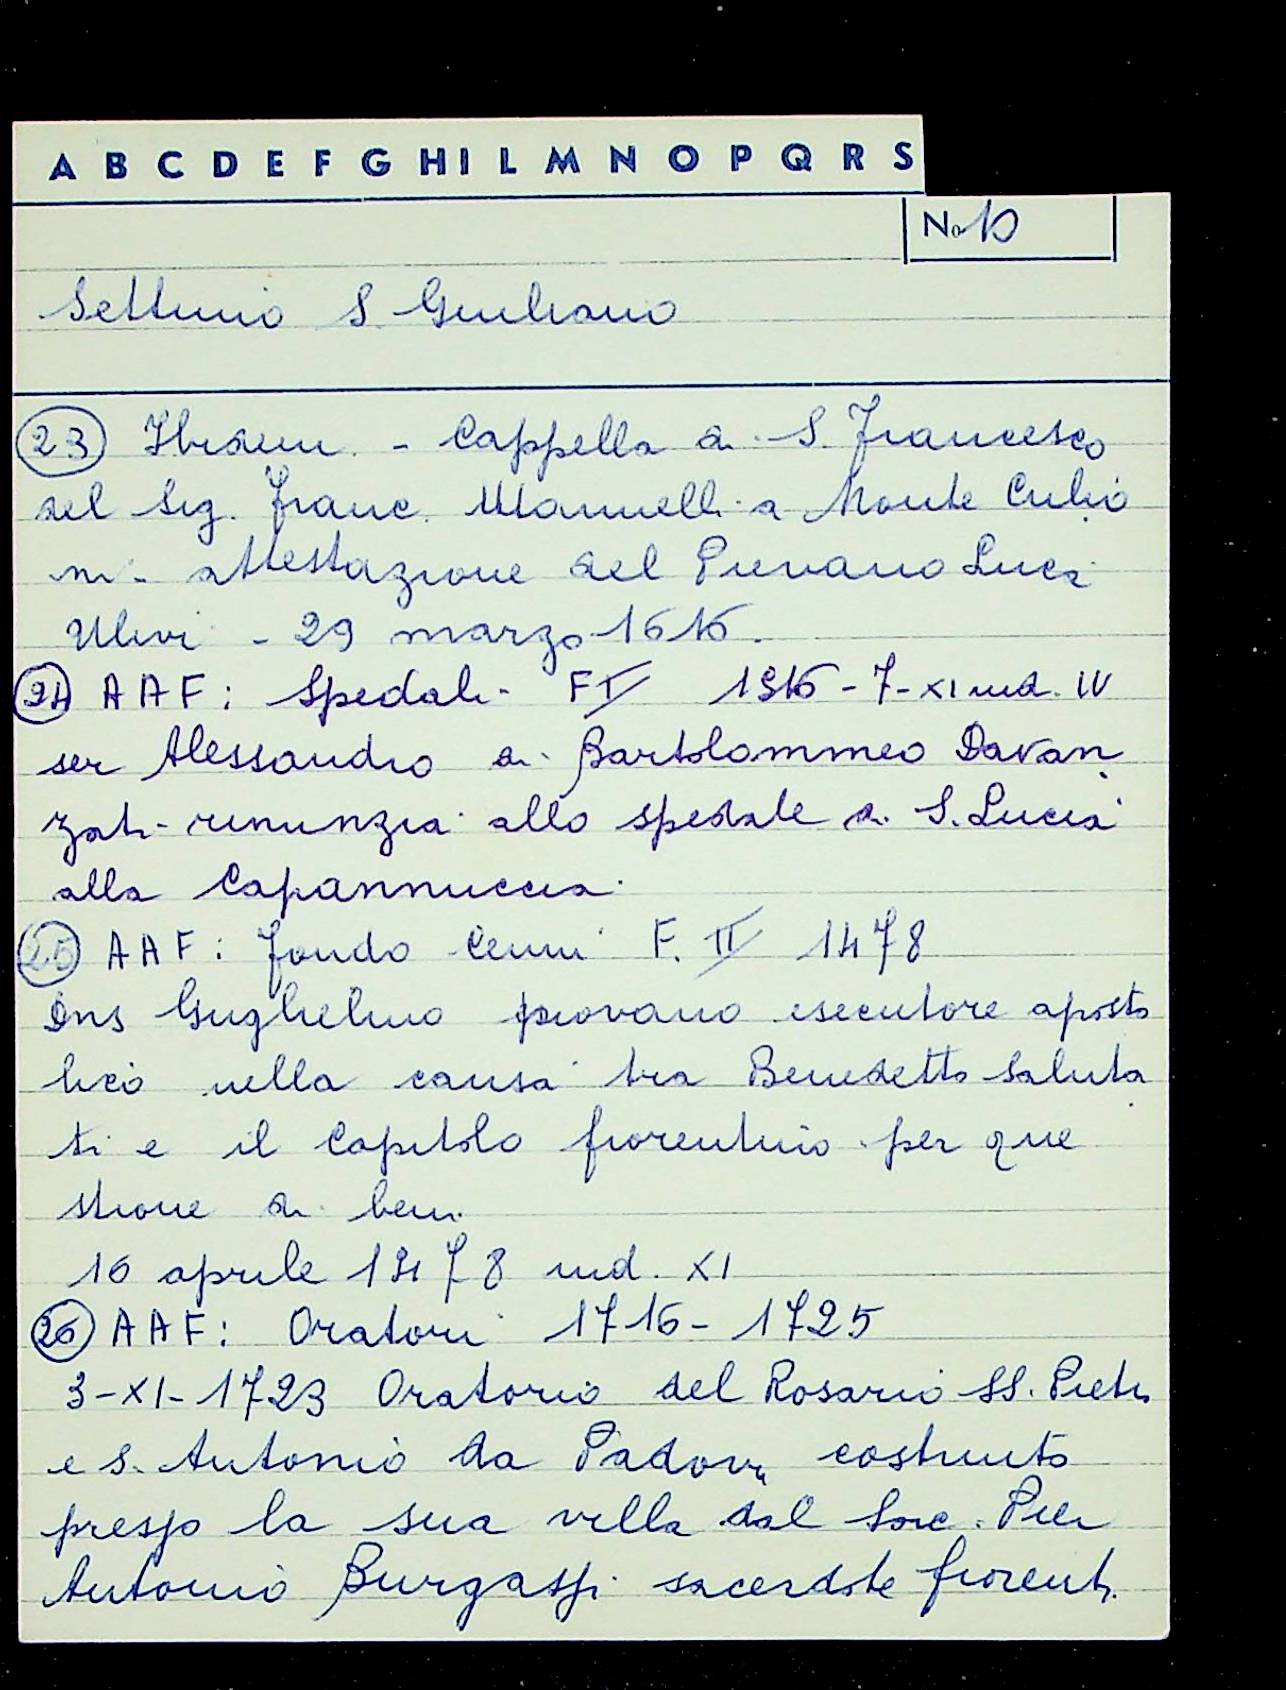 A B C D E F G H I L M N O P Q R S
No 10
Settimo S. Giuliano
23 Ibidem - Cappella di S. Francesco
del Sig. Franc. Mannelli a Monte Culi
attestazione del Pievano Luca
Ulivi - 29 marzo 1616.
24 AAF: Spedali - F 1516 - 7 - XI ind. IV
ser Alessandro di Bartolommeo Davan
zati rinunzia allo spedale di S. Lucia
alla Capannuccia.
25 AAF: fondo Cenni F. II 1478
Dns Guglielmo piovano esecutore aposto
lico nella causa tra Benedetto Saluta
ti e il Capitolo fiorentino per que
stione di beni.
16 aprile 1478 ind. XI
26 AAF: Oratori 1716 - 1725
3-XI-1723 Oratorio del Rosario SS. Pietro
e S. Antonio da Padova costruito
presso la sua villa dal Sac. Pier
Antonio Burgassi sacerdote fiorent.